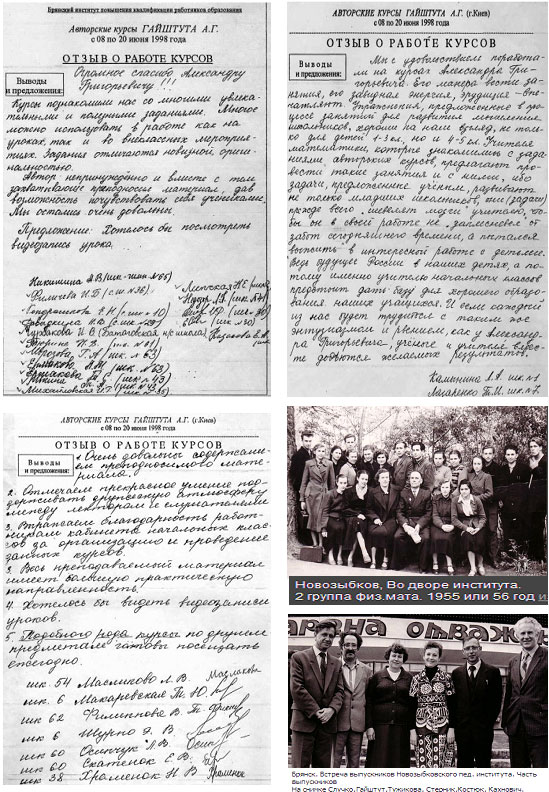 Брянский институт повышения квалификации работников образования
Авторские курсы ГАЙШТУТА А.Г.
с 08 по 20 июня 1998 года
ОТЗЫВ О РАБОТЕ КУРСОВ
Выводы
и предложения:
Огромное спасибо Александру
Григорьевичу!!!
Курсы познакомили нас со многими увлека
тельными и полезными заданиями. Многое
можно использовать в работе как на
уроках, так и во внеклассных мероприя-
тиях. Задания отличаются новизной, ориги-
нальностью.
Автор непринуждённо и вместе с тем
захватывающе преподносит материал, дав
возможность почувствовать себя учениками.
Мы остались очень довольны.
Предложение: Хотелось бы посмотреть
видеозапись урока.
Никишина
(Батаговская н/с школа)
Морозова Т.А (шк. 63
Ермакова
Михайловская
АВТОРСКИЕ КУРСЫ ГАЙШТУТА А.Г. (г.Киев)
с 08 по 20 июня 1998 года
ОТЗЫВ О РАБОТЕ КУРСОВ
Выводы
и предложения:
Мы с удовольствием поработа-
ли на курсах Александра Гри-
горьевича. Его манера вести за-
нятия, его завидная энергия, эрудиция - впе-
чатляют. Упражнения, предложенные в про-
цессе занятий для развития мышления
школьников, хороши на наш взгляд, не толь-
ко для детей 1-3 кл, но и 4-5 кл. Учителя
математики, которые знакомились с зада-
ниями авторских курсов, предлагают про-
вести такие занятия и с ними, ибо
задачи, предложенные ученым, развивают
не только младших школьников, они (задачи)
прежде всего шевелят мозги учителю, что-
бы он в своей работе не "заплесневел" от
забот сегодняшнего времени, а пытался
выжить в интересной работе с детьми.
Ведь будущее России в наших детях, а по-
тому именно учителю начальных классов
предстоит дать базу для хорошего образо-
вания наших учащихся. И если каждый
из нас будет трудиться с таким же
энтузиазмом и рвением, как у Александ-
ра Григорьевича, ученые и учителя вмес-
те добьются желаемых результатов.
Калинина Л.А. шк. №1
Лазаренко Т.И. шк. №7.
АВТОРСКИЕ КУРСЫ ГАЙШТУТА А.Г. (г.Киев)
с 08 по 20 июня 1998 года
ОТЗЫВ О РАБОТЕ КУРСОВ
Выводы
и предложения:
1. Очень довольны содержани-
ем преподносимого мате-
риала.
2. Отмечаем прекрасное умение под-
держивать дружескую атмосферу
между лектором и слушателями
3. Выражаем благодарность работ-
никам кабинета начальных клас-
сов за организацию и проведение
данных курсов.
3. Весь преподаваемый материал
имеет большую практическую
направленность.
4. Хотелось бы видеть видеозаписи
уроков.
5. Подобного рода курсы по другим
предметам готовы посещать
ежегодно.
шк. 54 Маслякова Л. В.
шк. 6 Макаревская Т. Ю.
шк 62 Филиппова В. Т.
шк 6 Щурпо Э. В.
шк 60 Осипчук Л.В.
шк 60 Скатенок Е. В.
шк 38 Храменок Н В
Новозыбков, Во дворе института.
2 группа физ.мата. 1955 или 56 год из
арана отважн
Брянск. Встреча выпускников Новозыбковского пед. института. Часть
выпускников
На снимке Случко,Гайштут,Тужикова, Стерник,Костюк, Кахнович.